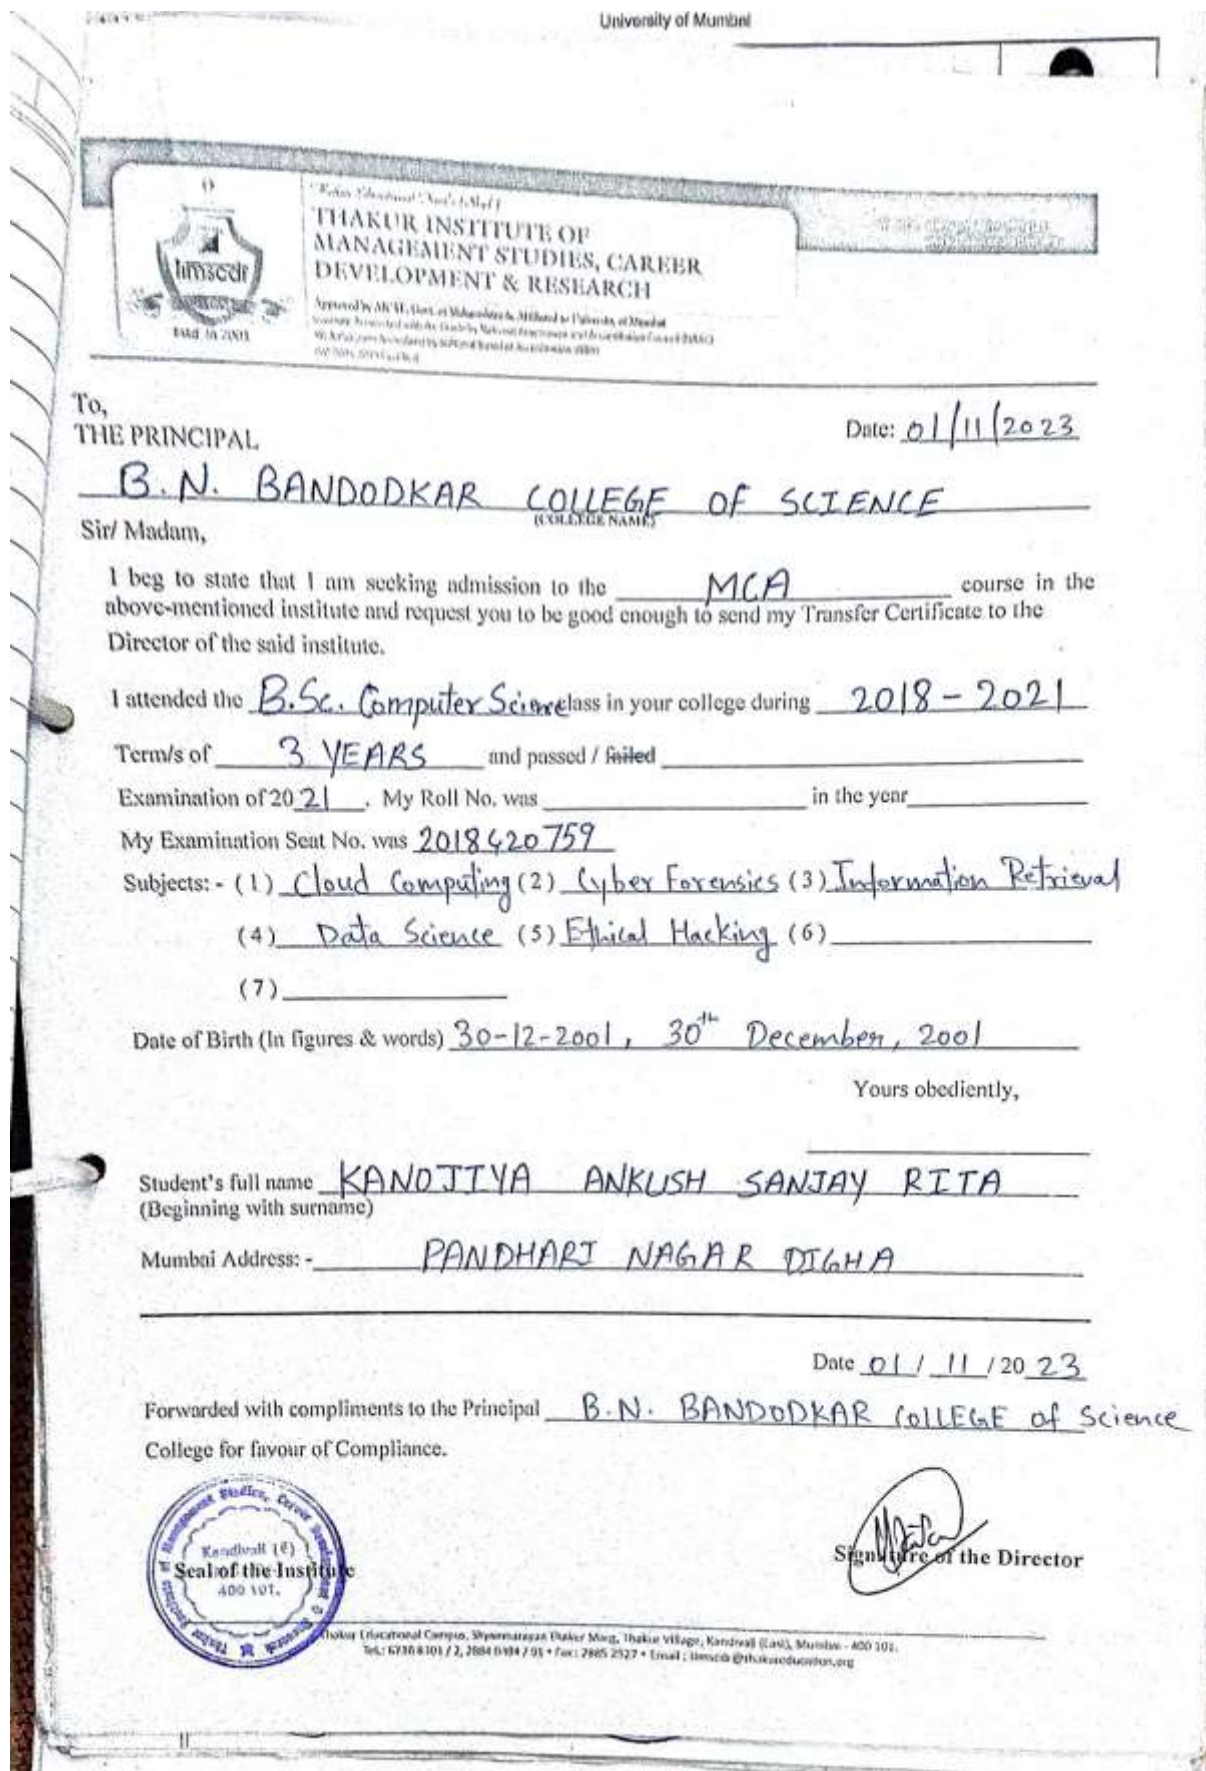 University of Mumbai
THAKUR INSTITUTE OF
MANAGEMENT STUDIES, CAREER
DEVELOPMENT & RESEARCH
timscdr
Estd. in 2001
To,
THE PRINCIPAL
Date: 01/11/2023
B.N. BANDODKAR COLLEGE OF SCIENCE
(COLLEGE NAME)
Sir/ Madam,
I beg to state that I am seeking admission to the MCA course in the
above-mentioned institute and request you to be good enough to send my Transfer Certificate to the
Director of the said institute.
I attended the B.Sc. Computer Science class in your college during 2018 - 2021
Term/s of 3 YEARS and passed / failed
Examination of 2021. My Roll No. was in the year
My Examination Seat No. was 2018420759
Subjects: - (1) Cloud Computing (2) Cyber Forensics (3) Information Retrieval
(4) Data Science (5) Ethical Hacking (6)
(7)
Date of Birth (In figures & words) 30-12-2001, 30th December, 2001
Yours obediently,
Student's full name KANOJIYA ANKUSH SANJAY RITA
(Beginning with surname)
Mumbai Address: - PANDHARI NAGAR DIGHA
Date 01 / 11 / 20 23
Forwarded with compliments to the Principal B.N. BANDODKAR COLLEGE of Science
College for favour of Compliance.
Kandivali (E)
Seal of the Institute
400 101.
Signature of the Director
Thakur Educational Campus, Shyamnarayan Thakur Marg, Thakur Village, Kandivali (East), Mumbai - 400 101.